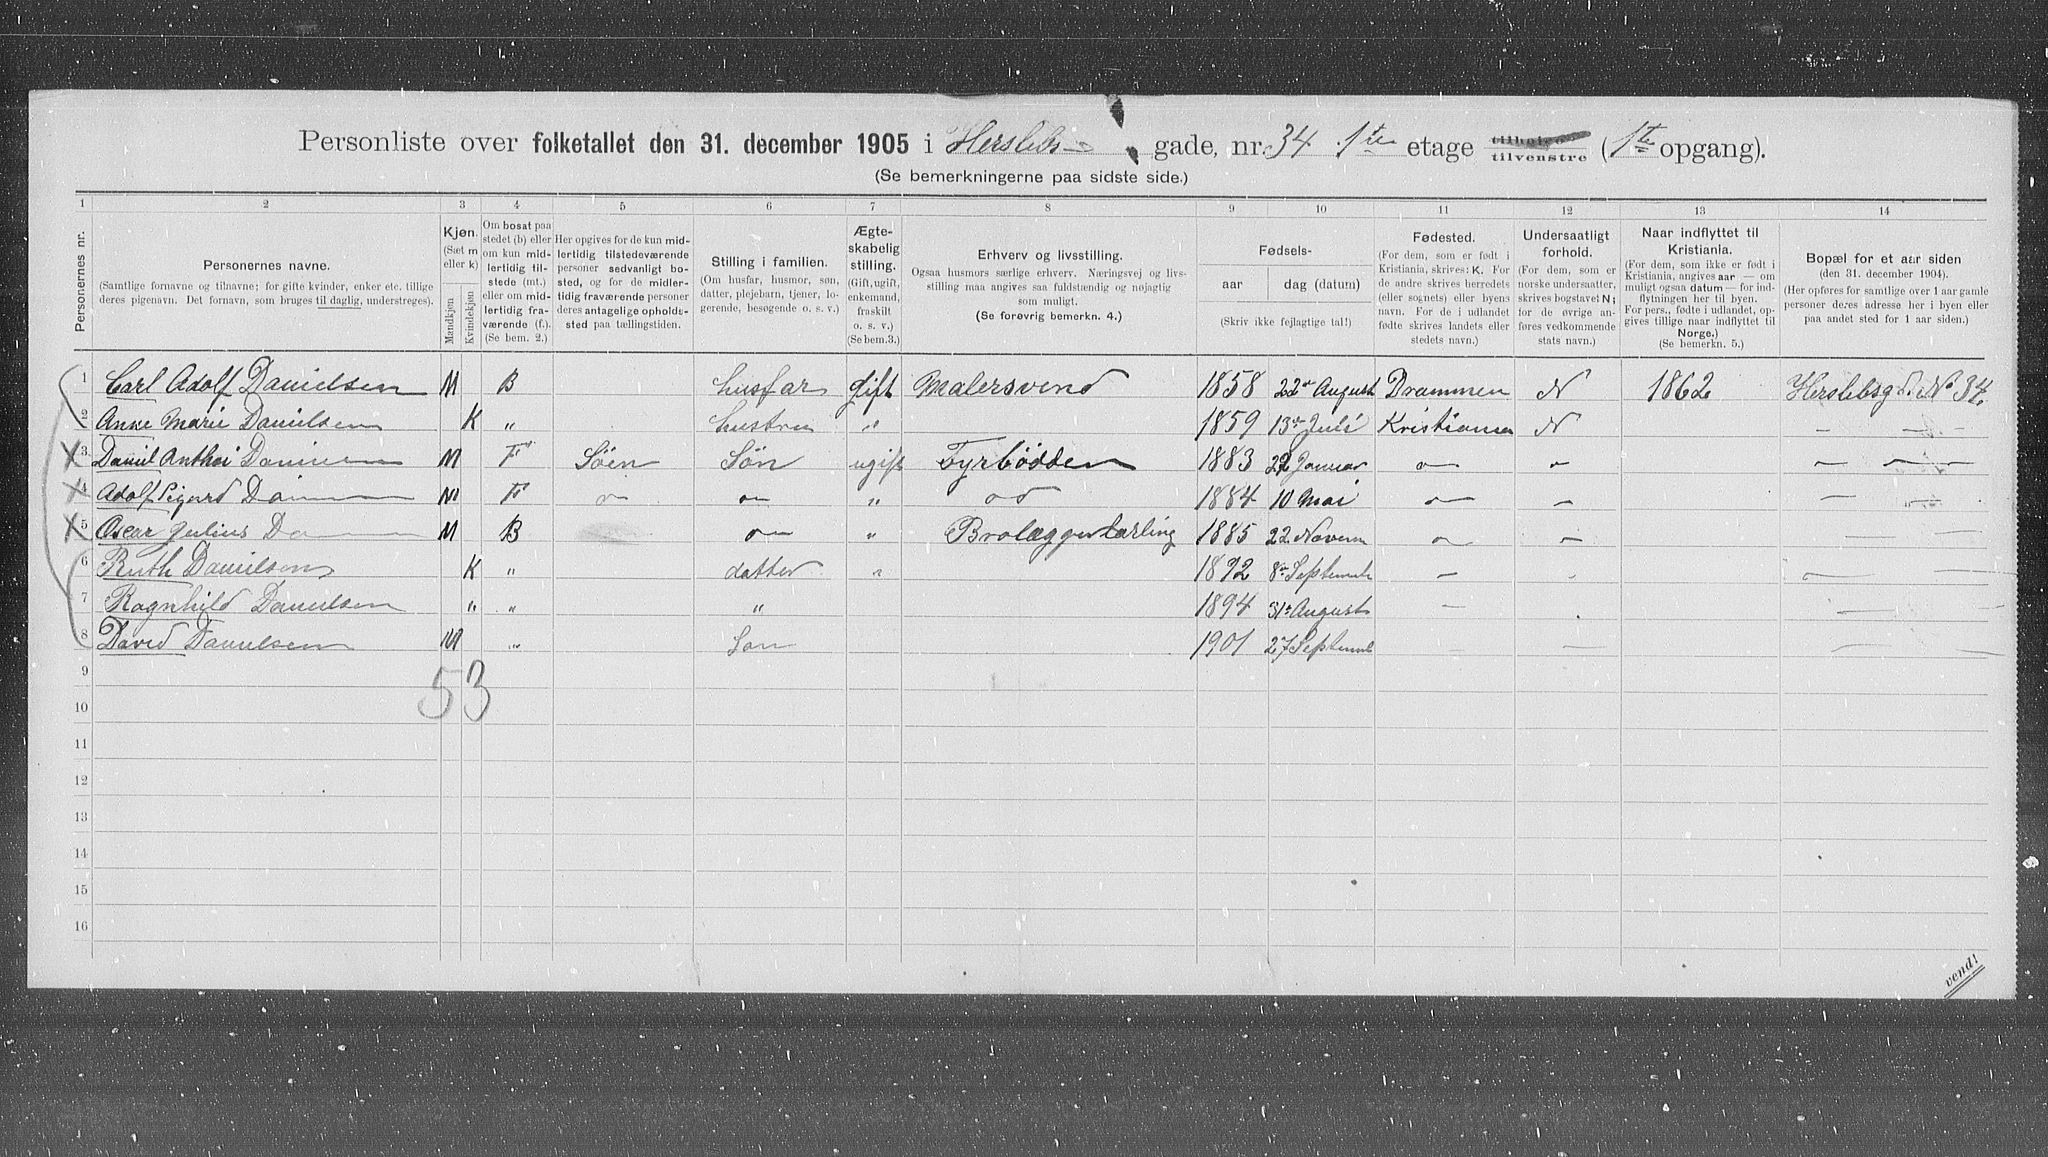 Personliste over folketallet den 31. december 1905 i Herslebs gade, nr. 34 1te etage tilhøire tilvenstre (1te opgang).
(Se bemerkningerne paa sidste side.)
1 2 3 4 5 6 7 8 9 10 11 12 13 14
Personernes nr.
Personernes navne.
(Samtlige fornavne og tilnavne; for gifte kvinder, enker etc. tillige
deres pigenavn. Det fornavn, som bruges til daglig, understreges).
Kjøn.
(Sæt m
eller k)
Mandkjøn
Kvindekjøn
Om bosat paa
stedet (b) eller
om kun mid-
lertidig til-
stede (mt.)
eller om mid-
lertidig fra-
værende (f.).
(Se bem. 2.)
Her opgives for de kun mid-
lertidig tilstedeværende
personer sedvanlig bo-
sted, og for de midler-
tidig fraværende personer
deres antagelige opholds-
sted paa tællingstiden.
Stilling i familien.
(Om husfar, husmor, søn,
datter, plejebarn, tjener, lo-
gerende, besøgende o. s. v.)
Ægte-
skabelig
stilling.
(Gift, ugift,
enkemand,
fraskilt
o. s. v.)
(Se bem.3.)
Erhverv og livsstilling.
Ogsaa husmors særlige erhverv. Næringsvej og livs-
stilling maa angives saa fuldstændig og nøjagtig
som muligt.
(Se forøvrig bemerkn. 4.)
Fødsels-
aar
dag (datum)
(Skriv ikke fejlagtige tal!)
Fødested.
(For dem, som er født i
Kristiania, skrives: K. For
de andre skrives herredets
(eller sognets) eller byens
navn. For de i udlandet
fødte skrives landets eller
stedets navn.)
Undersaatligt
forhold.
(For dem, som er
norske undersaatter,
skrives bogstavet N;
for de øvrige an-
føres vedkommende
stats navn.)
Naar indflyttet til
Kristiania.
(For dem, som ikke er født i
Kristiania, angives aar — om
muligt ogsaa datum — for ind-
flytningen her til byen.
For pers., fødte i udlandet, op-
gives tillige naar indflyttet til
Norge.)
(Se bemerkn. 5.)
Bopæl for et aar siden
(den 31. december 1904).
(Her opføres for samtlige over 1 aar gamle
personer deres adresse her i byen eller
paa andet sted for 1 aar siden.)
1 Carl Adolf Danielsen M B husfar gift Malersvend 1858 22de August Drammen N 1862 Herslebsgd. No 34.
2 Anne Marie Danielsen K " hustru " 1859 13de Juli Kristiania N — —
3 Daniel Anthoi Danielsen M F Søen Søn ugift Fyrbødder 1883 22 Januar — — — —
4 Adolf Sigurd Dan M F " " 1884 10 Mai — — — —
5 Oscar Julius Da M B " Brolæggerlærling 1885 22 Novem — — — —
6 Ruth Danielsen K " datter " 1892 8de Septemb — — —
7 Ragnhild Danielsen " " " 1894 31te August — — —
8 David Danielsen M " Søn 1901 27 Septemb — — — —
9
53
10
11
12
13
14
15
16
vend!